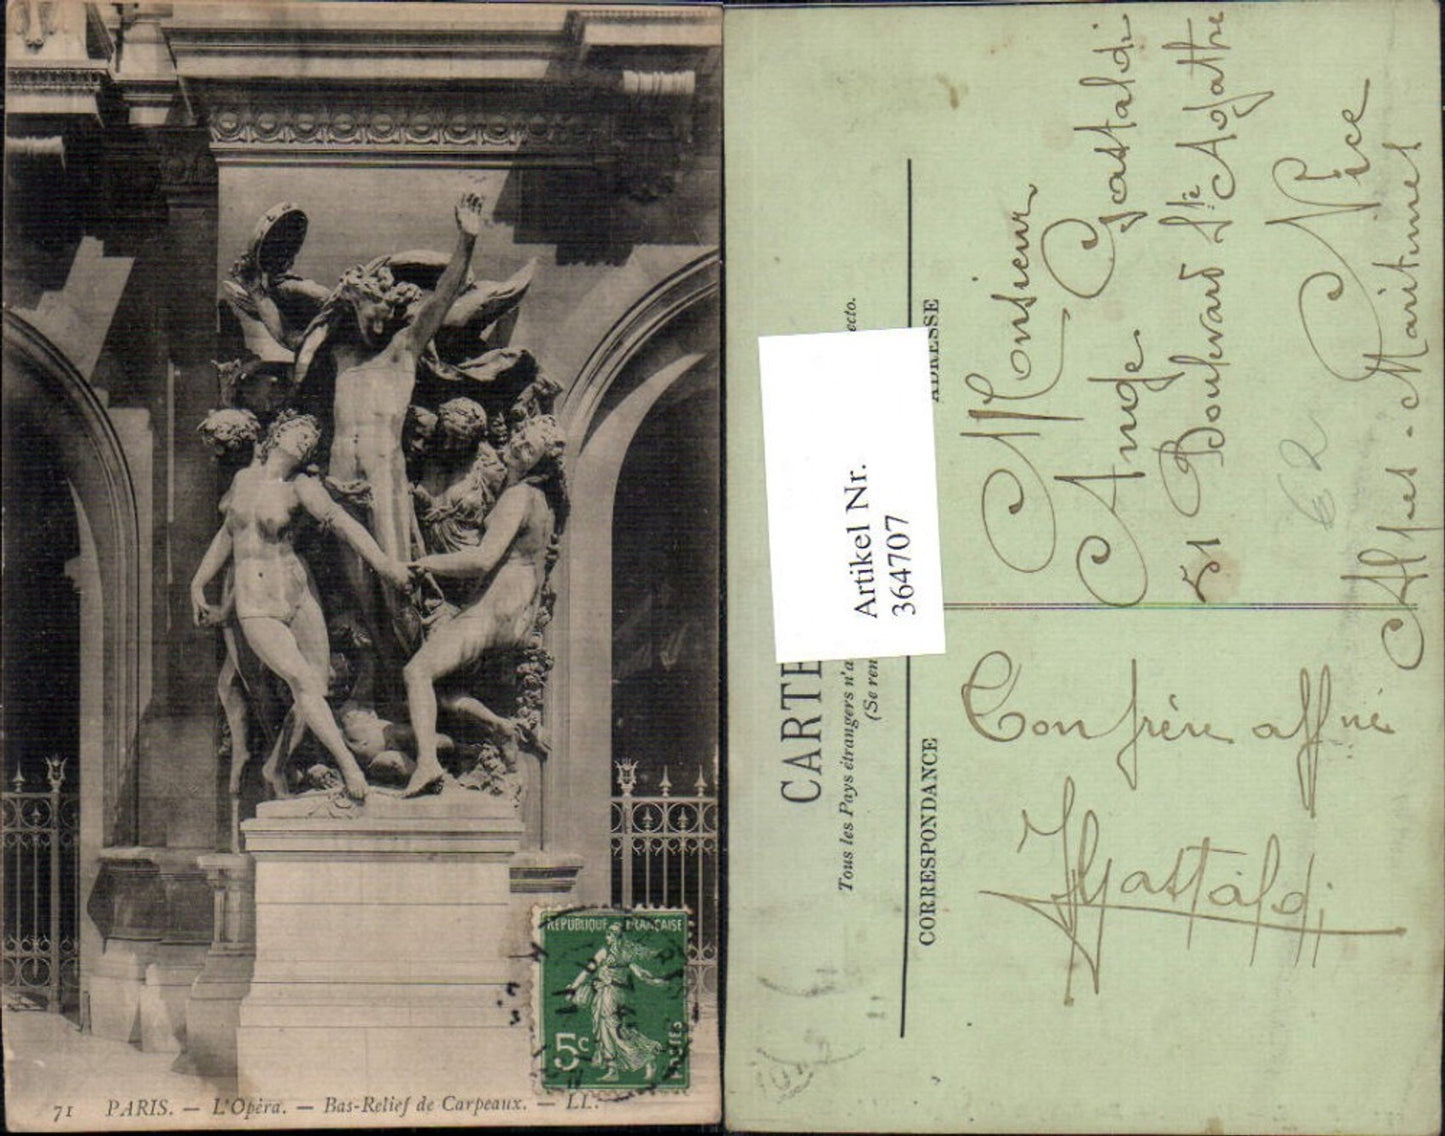 71 PARIS. — L'Opéra. — Bas-Relief de Carpeaux. — LL.
RÉPUBLIQUE FRANÇAISE
5c
POSTES
CARTE
Tous les Pays étrangers n'a
ecto.
(Se ren
CORRESPONDANCE
ADRESSE
Artikel Nr.
364707
Monsieur
Ange Gastaldi
51 Boulevard Ste Agathe
Nice
Alpes-Maritimes
62
Ton frère affné
Gastaldi